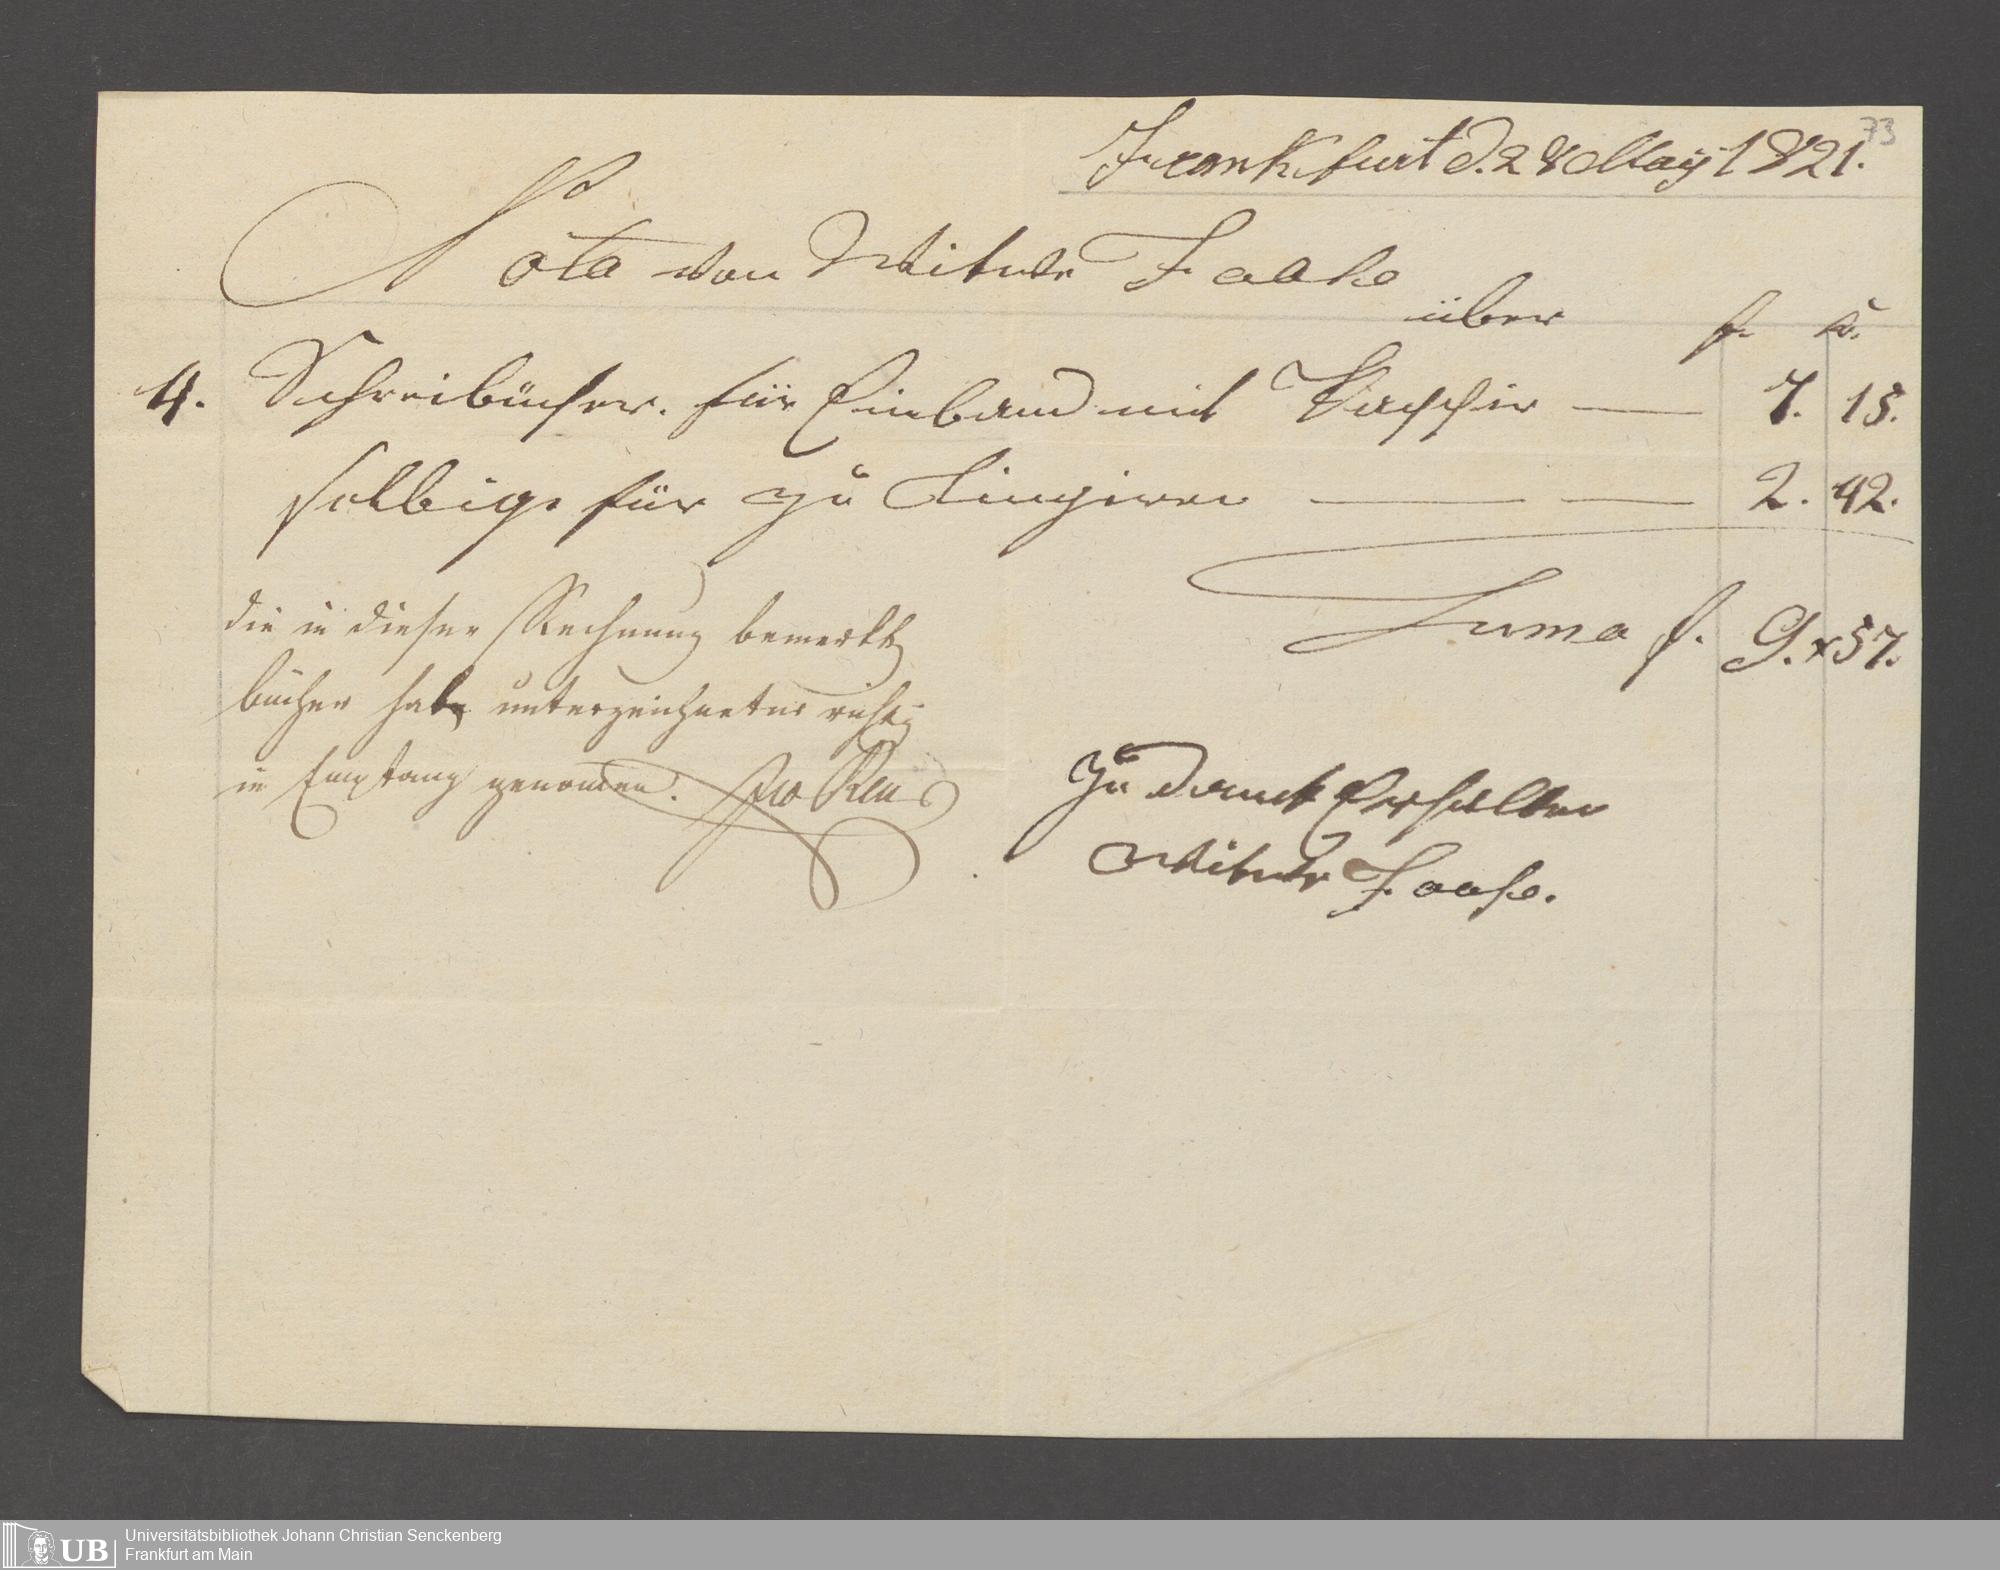 73
Frankfurt d. 28 May 1821.
Nota von Witwe Haake
über
f. x.
4. Schreibücher. für Einband mit Pappir — 7. 15.
selbige für zu Lingiren — — 2. 42.
Suma f. 9. x 57.
die in dieser Rechnung bemerkte
bücher habe unterzeichneter richtig
in Empfang genomen.
Zu danck Erhalten
Witwe Haake.
UB
Universitätsbibliothek Johann Christian Senckenberg
Frankfurt am Main